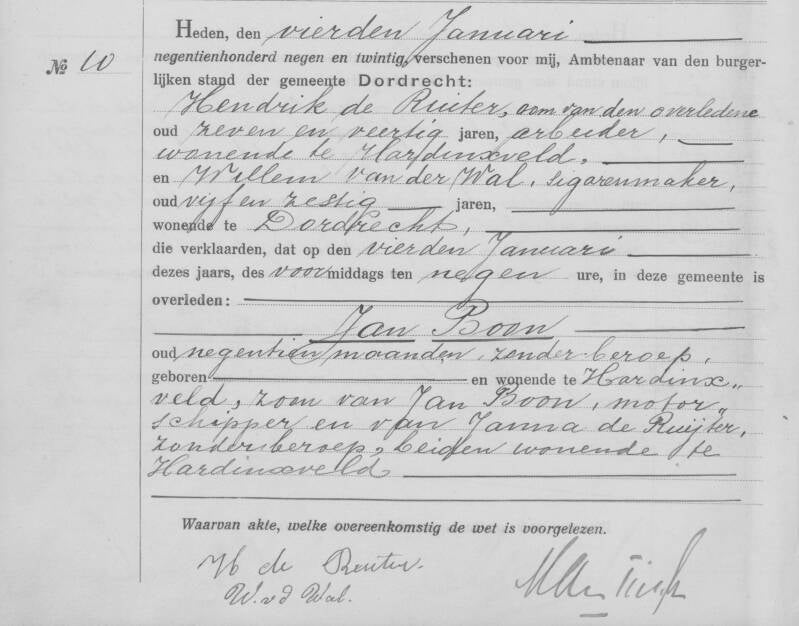 Heden, den vierden Januari
№ 10
negentienhonderd negen en twintig, verschenen voor mij, Ambtenaar van den burger-
lijken stand der gemeente Dordrecht:
Hendrik de Ruiter, oom van den overledene
oud zeven en veertig jaren, arbeider,
wonende te Hardinxveld,
en Willem van der Wal, sigarenmaker,
oud vijf en zestig jaren,
wonende te Dordrecht,
die verklaarden, dat op den vierden Januari
dezes jaars, des voormiddags ten negen ure, in deze gemeente is
overleden:
Jan Boon
oud negentien maanden, zonder beroep,
geboren en wonende te Hardinx„
veld, zoon van Jan Boon, motor„
schipper en van Janna de Ruijter,
zonder beroep, beiden wonende te
Hardinxveld
Waarvan akte, welke overeenkomstig de wet is voorgelezen.
H de Ruiter.
W. v d Wal.